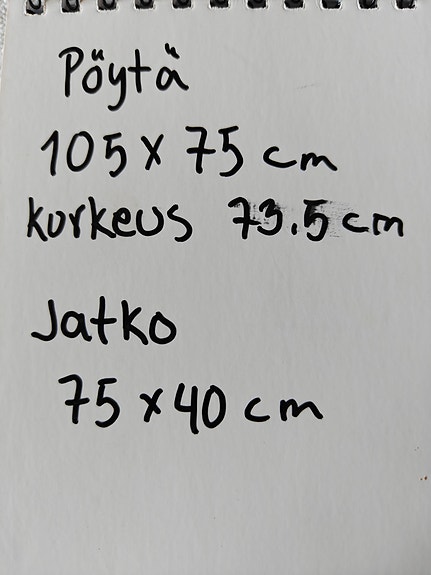 Pöytä
105 x 75 cm
korkeus 73.5 cm
Jatko
75 x 40 cm